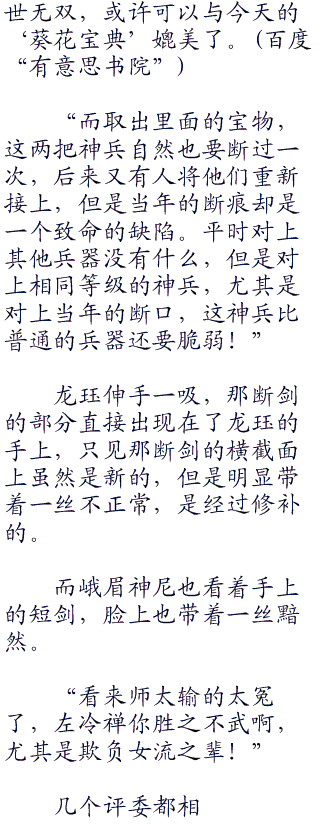 世无双，或许可以与今天的
‘葵花宝典’媲美了。(百度
“有意思书院”)
“而取出里面的宝物，
这两把神兵自然也要断过一
次，后来又有人将他们重新
接上，但是当年的断痕却是
一个致命的缺陷。平时对上
其他兵器没有什么，但是对
上相同等级的神兵，尤其是
对上当年的断口，这神兵比
普通的兵器还要脆弱！”
龙珏伸手一吸，那断剑
的部分直接出现在了龙珏的
手上，只见那断剑的横截面
上虽然是新的，但是明显带
着一丝不正常，是经过修补
的。
而峨眉神尼也看着手上
的短剑，脸上也带着一丝黯
然。
“看来师太输的太冤
了，左冷禅你胜之不武啊，
尤其是欺负女流之辈！”
几个评委都相